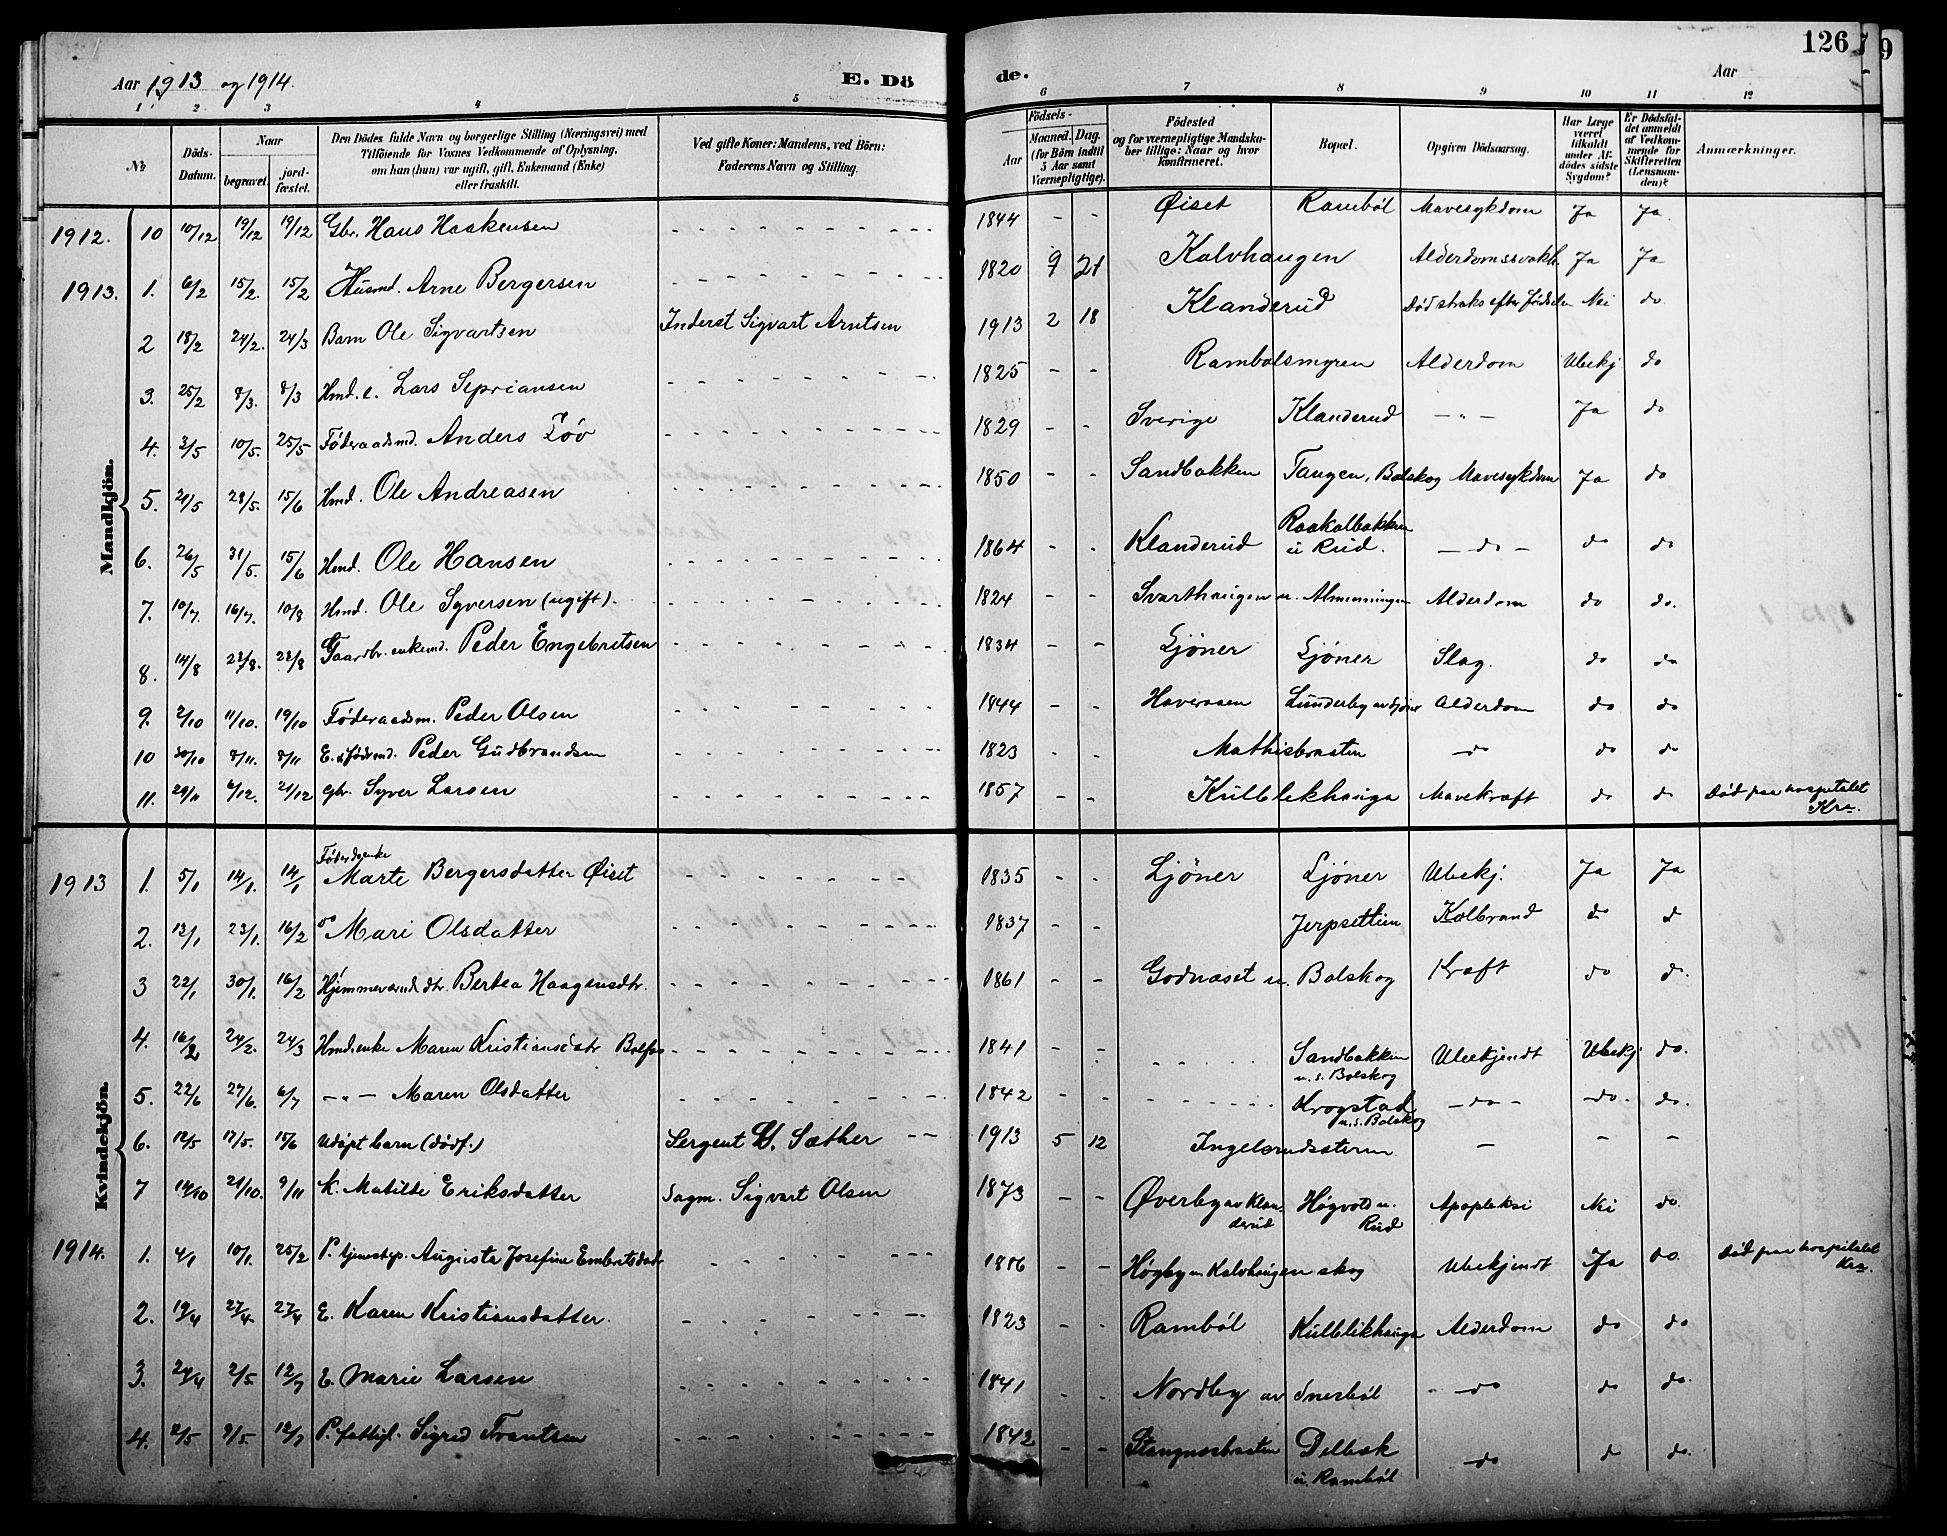 Aar 1913 og 1914. E. Dö de. Aar 126
1 2 3 4 5 6 7 8 9 10 11 12
No Döds-Datum. Naar begravet. jord-fæstet. Den Dödes fulde Navn og borgerlige Stilling (Næringsvei) med Tilföiende for Voxnes Vedkommende af Oplysning, om han (hun) var ugift, gift, Enkemand (Enke) eller fraskilt. Ved gifte Koner: Mandens, ved Börn: Faderens Navn og Stilling. Födsels- Aar Maaned. Dag. (for Börn indtil 5 Aar samt Værnepligtige). Födested og for værnepligtige Mandskaber tillige: Naar og hvor konfirmeret. Bopæl. Opgiven Dödsaarsag. Har Læge været tilkaldt under Afdödes sidste Sygdom? Er Dödsfaldet anmeldt af Vedkommende for Skifteretten (Lensmanden)? Anmærkninger.
Mandkjön.
1912. 10 10/12 19/12 19/12 Gbr. Hans Haakensen 1844 - - Øiset Rambøl Mavesykdom Ja Ja.
1913. 1. 6/2 15/2. 15/2 Husmd. Arne Bergersen 1820 9 21 Kalvhaugen Alderdomssvakh. Ja Ja
2 18/2 24/2. 24/3 Barn Ole Sigvartsen Inderst Sigvart Arntsen 1913 2 18 Klanderud Död straks efter fødselen Nei do
3. 25/2 8/3. 8/3 Hmd. e. Lars Sepriansen 1825 - - Rambølsmyren Alderdom Ubekj. do
4. 3/5 10/5. 25/5 Föderaadsmd. Anders Löv 1829 - - Sverige Klanderud - " - Ja do
5. 21/5 28/5. 15/6 Hmd. Ole Andreasen 1850 - - Sandbakken Tangen, Bølskog Mavesykdom Ja do
6. 26/5 31/5. 15/6 Hmd. Ole Hansen 1864 - - Klanderud Raakalbakken u Rud. - do - do do
7. 10/7 16/7. 10/8 Hmd. Ole Syversen (ugift). 1824 - - Svarthaugen u. Almenningen Alderdom do do.
8. 14/8 22/8. 22/8 Gaardbr. enkemd. Peder Engebretsen 1834 - - Ljöner Ljöner Slag. do do
9. 2/10 11/10. 19/10 Föderaadsm. Peder Olsen 1844 - - Haverasen Lunderby av Ljöner Alderdom do do
10 30/10 8/11. 8/11 Peder Gudbrandsen 1823 - Mathisbraaten - do do do
11. 29/11 6/12. 21/12 Gbr. Syver Larsen 1857 - - Kulblikhauga Mavekræft do do Död paa hospitalet Kra.
Kvindekjön.
1913 1. 5/1 14/1. 14/1 Föderdsenke Marte Bergersdatter Øiset 1835 - - Ljöner Ljöner Ubekj. Ja Ja
2. 13/1 23/1. 16/2 do Mari Olsdatter 1837 - - Jerpsettien Kolbrand do d
3 22/1 30/1. 16/2 Hjemmeværende dtr. Bertea Haagensdtr. 1861 - - Godnaset u. Bølskog Kræft do d.
4. 16/2 24/2. 24/3 Hmd.enke Maren Kristiansdtr 1841 - - Sandbakken u. s. Bølskog Ubekjendt Ubekj do.
5. 22/6 27/6. 6/7 - " - Maren Olsdatter 1842 - - Krogstad u. s. Bølskog - do - - do. do.
6. 12/5 17/5. 15/6 Udöpt barn (dödf.) Sergent Sæther 1913 5 12 Ingelsrudsæteren - - -
7 14/10 21/10. 9/11 K. Matilde Eriksdatter Sagm. Sigvart Olsen 1873 - - Øverby av Klanderud Høgvold u. Rud Apopleksi Nei do.
1914. 1. 4/1 10/1. 25/2 P. tjenestep. Augusta Josefine Embretsdatr 1886 - - Høgby u. Kalvhaugen skog Ubekjendt Ja do. Död paa hospitalet Kra.
2. 19/4 27/4. 27/4 E. Karen Kristiansdatter. 1823 - - Rambøl Kulblikhauga Alderdom do do
3. 24/4 2/5. 12/7 E. Marie Larsen 1841 - - Nordby av Snerbøl - do do do.
4. 2/5 9/5. 12/7 P. fattigl. Sigrid Frantsen 1842 - - Stangnesbraaten Delbæk u. Rambøl - do d do.